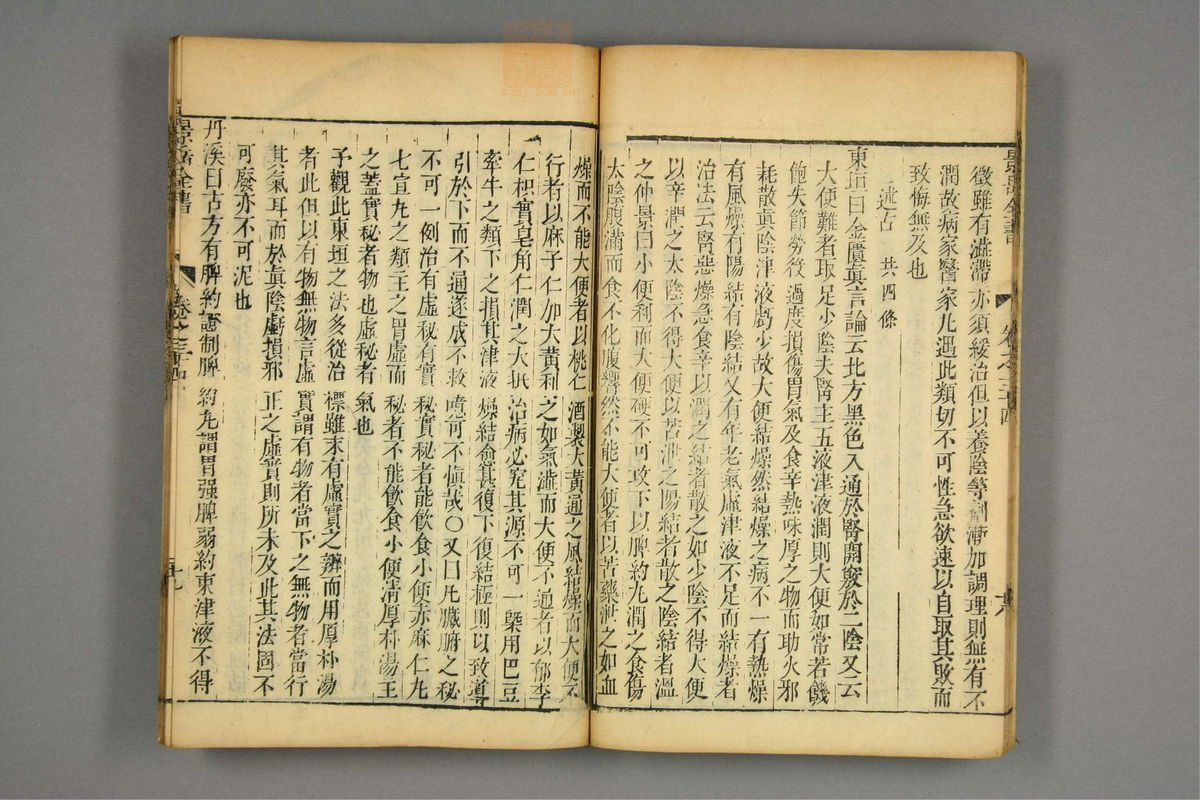 景岳全書
卷之三十四
共
徵雖有澁滯亦須緩治但以養陰等劑漸加調理則無有不
潤故病家醫家凡遇此類切不可性急欲速以自取其敗而
致悔無及也
述古 共四條
東垣曰金匱真言論云北方黑色入通於腎開竅於二陰又云
大便難者取足少陰夫腎主五液津液潤則大便如常若饑
飽失節勞役過度損傷胃氣及食辛熱味厚之物而助火邪
耗散真陰津液虧少故大便結燥然結燥之病不一有熱燥
有風燥有陽結有陰結又有年老氣虛津液不足而結燥者
治法云腎惡燥急食辛以潤之結者散之如少陰不得大便
以辛潤之太陰不得大便以苦泄之陽結者散之陰結者溫
之仲景曰小便利而大便硬不可攻下以脾約丸潤之食傷
太陰腹滿而食不化腹響然不能大便者以苦藥泄之如血
燥而不能大便者以桃仁酒製大黃通之風結燥而大便不
行者以麻子仁加大黃利之如氣澁而大便不通者以郁李
仁枳實皂角仁潤之大抵治病必究其源不可一槩用巴豆
牽牛之類下之損其津液燥結愈甚復下復結極則以致導
引於下而不通遂成不救噫可不愼哉〇又曰凡臟腑之秘
不可一例治有虛秘有實秘實秘者能飲食小便赤麻仁丸
七宣丸之類主之胃虛而秘者不能飲食小便清厚朴湯主
之蓋實秘者物也虛秘者氣也
予觀此東垣之法多從治標雖未有虛實之辨而用厚朴湯
者此但以有物無物言虛實謂有物者當下之無物者當行
其氣耳而於真陰虧損邪正之虛實則所未及此其法固不
可廢亦不可泥也
丹溪曰古方有脾約證制脾約丸謂胃强脾弱約束津液不得
景岳全書
卷之三十四
七